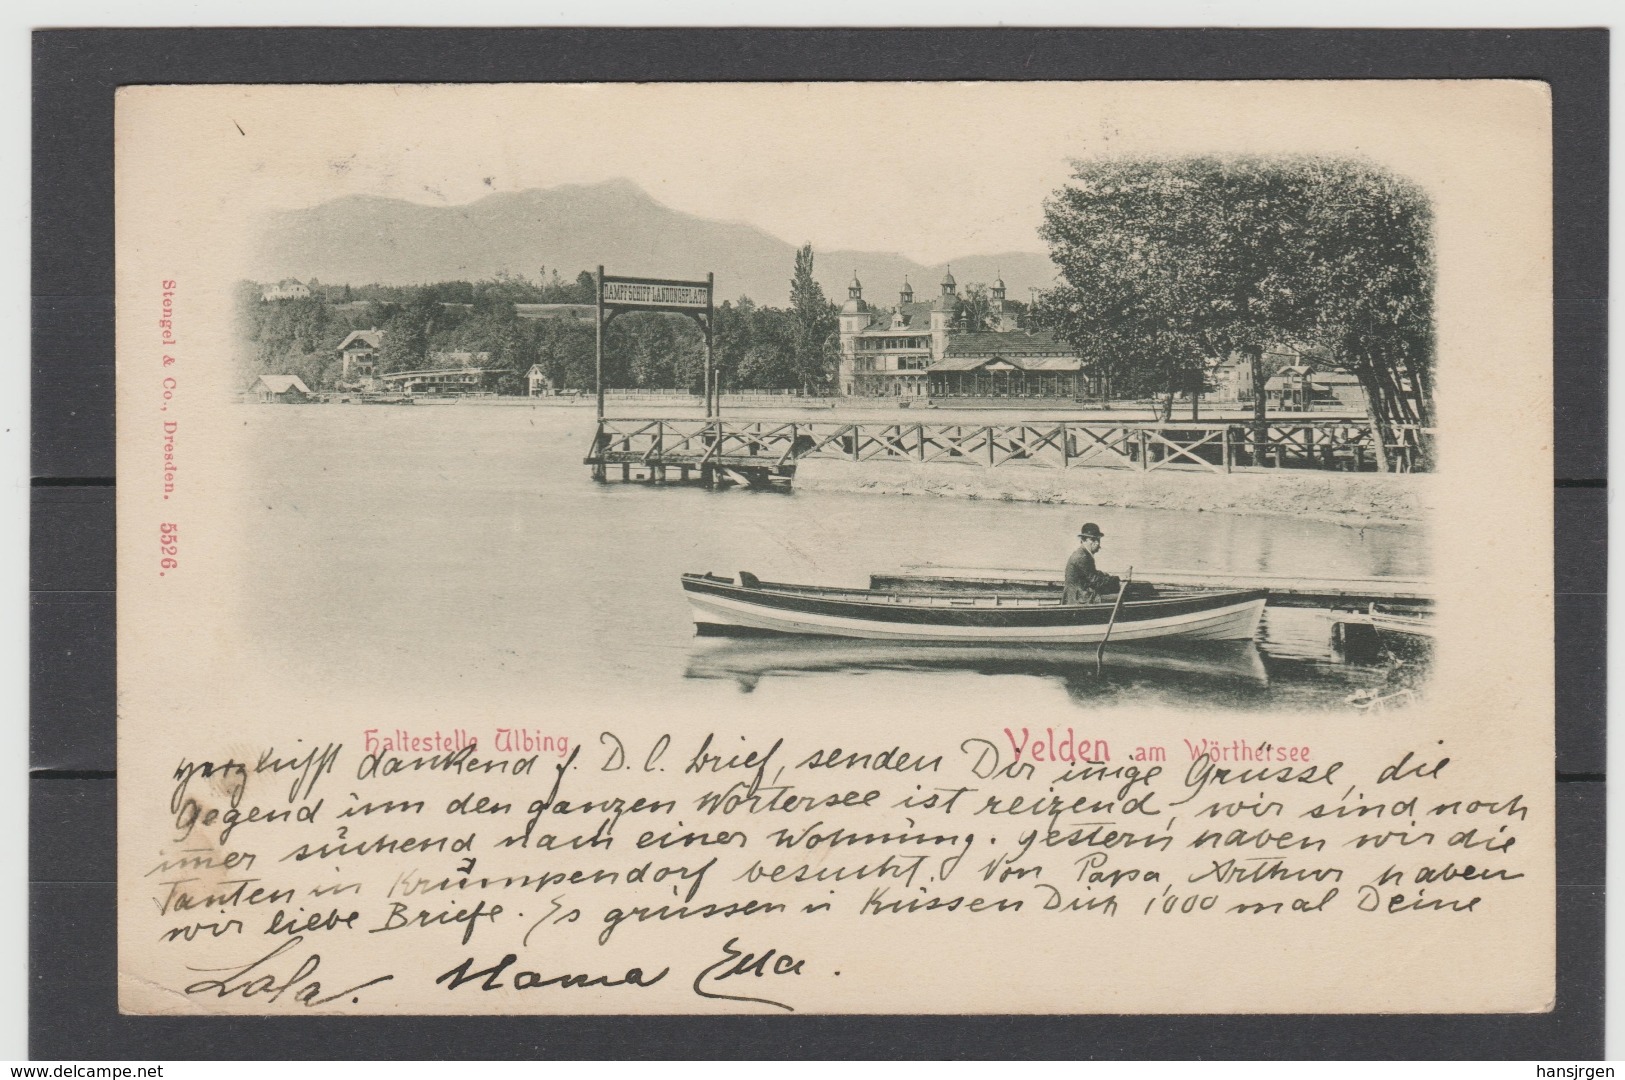 DAMPFSCHIFF LANDUNGSPLATZ
Stengel & Co., Dresden. 5526.
Haltestelle Ulbing
Velden am Wörthersee
dankend f. D. l. brief, senden Dir innige Grüsse, die
Gegend um den ganzen Wörtersee ist reizend, wir sind noch
immer suchend nach einer Wohnung. gestern haben wir die
Tanten in Krumpendorf besucht. Von Papa, Arthur haben
wir liebe Briefe. Es grüssen u küssen Dich 1000 mal Deine
Lola. Mama Ella.
www.delcampe.net
hansjrgen